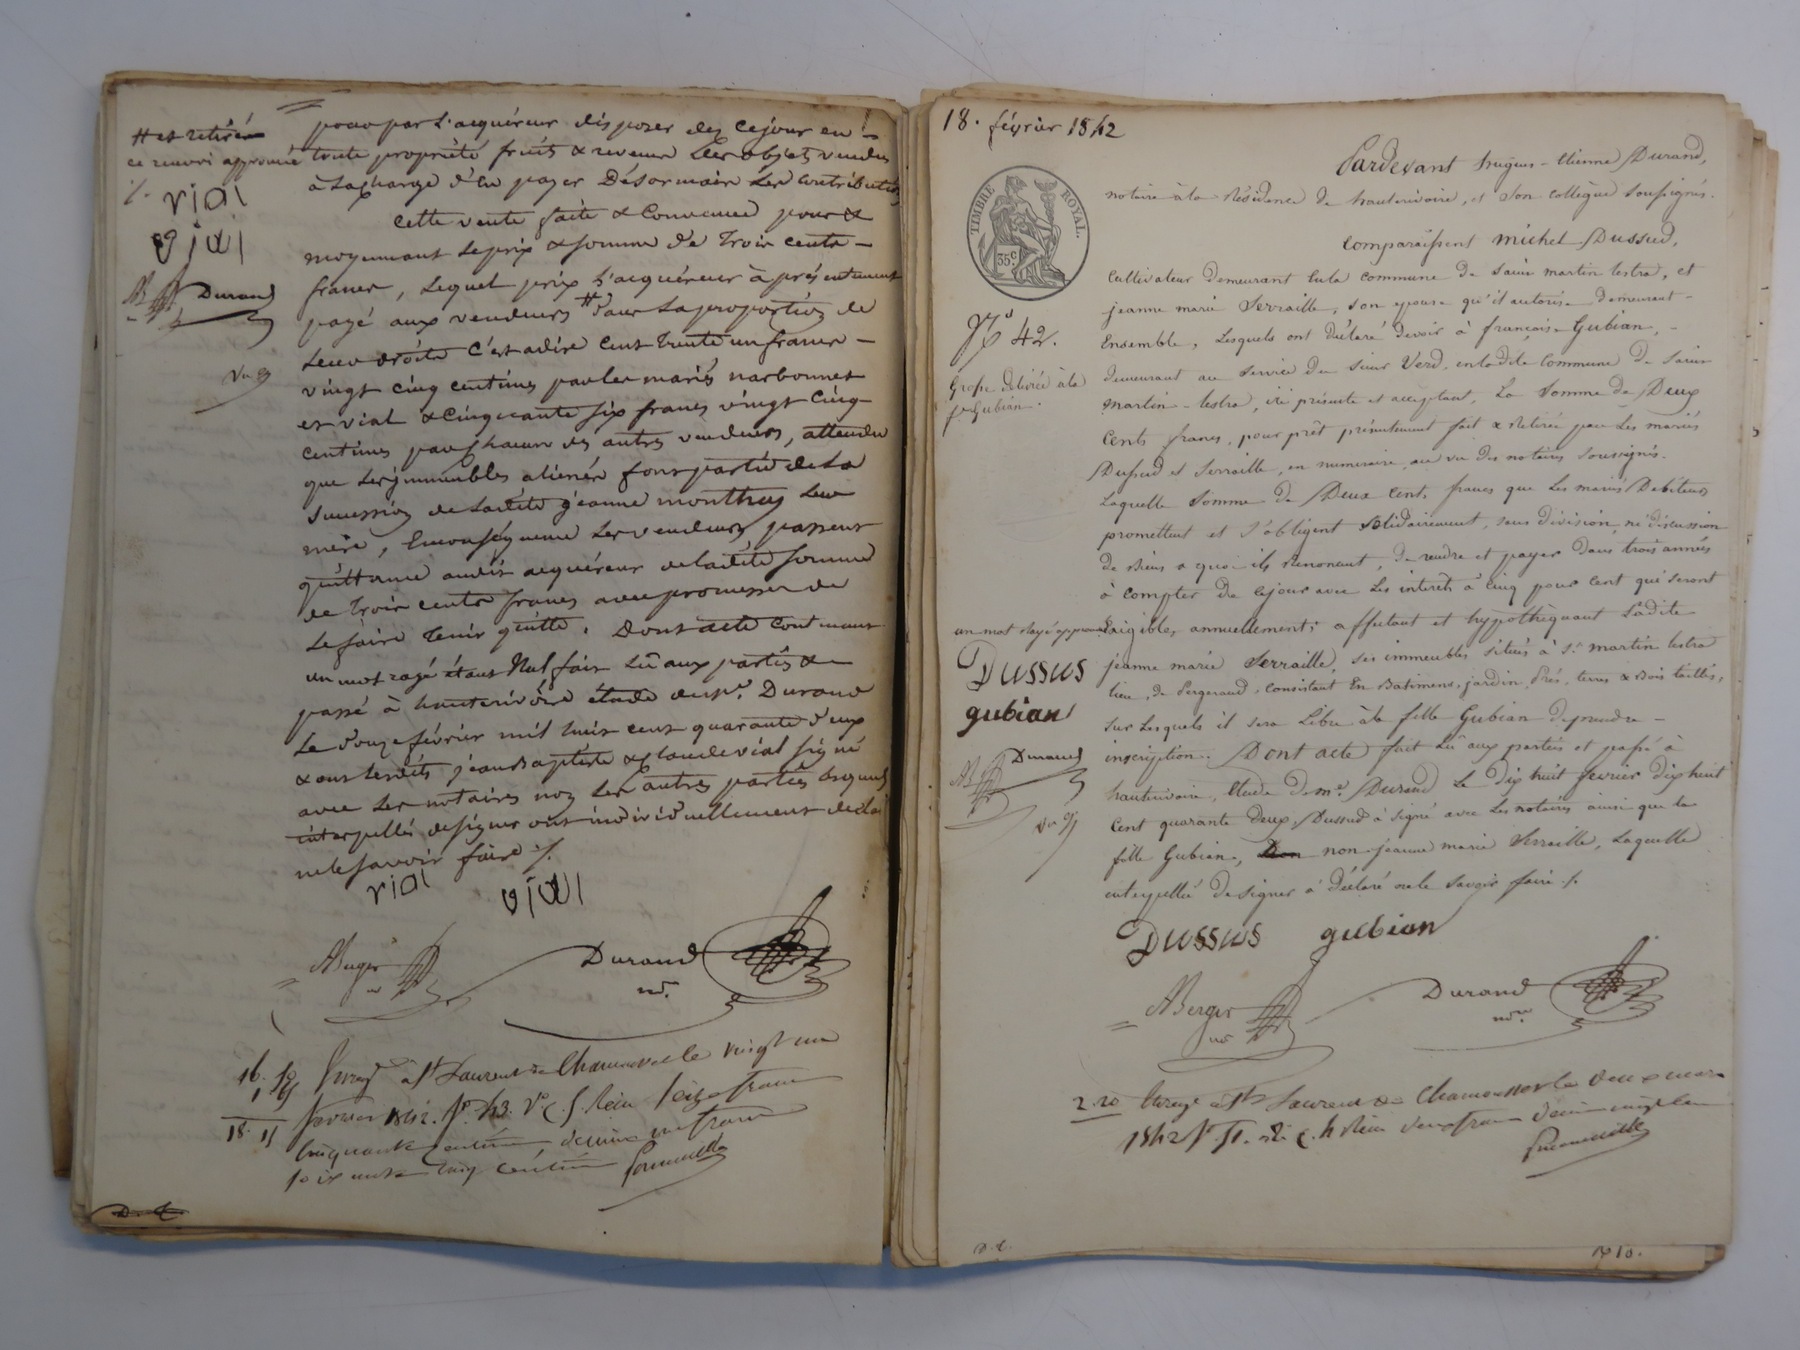 # et retiré
ce renvoi approuvé
vial
vial
Durand
Vu
pour par l'acquéreur disposer dez ce jour en
toute propriété fruits & revenus des objets vendus
à la charge d'en payer désormais les contributions
Cette vente faite & convenue pour &
moyennant le prix & somme de trois cents
francs, lequel prix l'acquéreur à présentement
payé aux vendeurs # dans la proportion de
leurs droits c'est adire cent trente un francs
vingt cinq centimes par les mariés narbonnet
et vial & cinquante six francs vingt cinq
centimes par chacun des autres vendeurs, attendu
que les immeubles aliénés font partie de la
succession de ladite jeanne monthuy leur
mère, En conséquence les vendeurs passent
quittance audit acquéreur de ladite somme
de trois cents francs avec promesse de
le faire tenir quitte. Dont acte contenant
un mot rayé étant Nul fait lû aux partis &
passé à hauterivoire étude de me. Durand
Le douze février mil huit cent quarante deux
& ont lesdits jean Baptiste & claude vial signé
avec les notaires non les autres parties lesquels
interpellés de signer ont individuellement déclaré
ne le savoir faire ./.
vial vial
ABerger Durand
nre.
16. 50
1 65
18. 15
Enregé à St Laurent de Chamousset le vingt un
fevrier 1842. fo. 43. Vo c. 5. Reçu seize francs
cinquante centimes decime un franc
soixante cinq centimes
D. C.
18. février 1842
TIMBRE ROYAL.
35 c.
No 42.
Grosse délivrée à la
fe Gubian.
un mot rayé approuvé
Dussus
gubian
Durand
Pardevant hugues-étienne Durand,
notaire à la Résidence de hauterivoire, et son collègue soussignés.
Comparaissent michel Dussud,
Cultivateur demeurant lula commune de saint martin lestra, et
jeanne marie Serraille, son epouse qu'il autorise demeurant
Ensemble, Lesquels ont déclaré devoir à françoise Gubian,
demeurant au service du sieur Verd, en ladite commune de saint
martin-lestra, ici présente et acceptant, La Somme de Deux
Cents francs, pour prêt présentement fait & Retirée par Les mariés
Dussud et Serraille, en numéraire, au vu des notaires soussignés.
Laquelle Somme de Deux Cents francs que Les mariés Débiteurs
promettent et s'obligent solidairement, sans division, ni discussion
de Biens a quoi ils Renoncent, de rendre et payer Dans trois années
à compter de ce jour avec Les interêts à Cinq pour Cent qui seront
Exigibles annuellement; affectant et hypothéquant Ladite
jeanne marie Serraille, ses immeubles situés à St. martin lestra
lieu de Pergeraud, consistant En Batimens, jardin, Prés, terres & Bois taillis,
sur Lesquels il sera Libre à la fille Gubian de prendre
inscription. Dont acte fait Lû aux parties et passé à
hauterivoire, Etude de me. Durand Le dix huit fevrier dix huit
Cent quarante deux. Dussud à signé avec Les notaires ainsi que la
fille Gubian, non jeanne marie Serraille, Laquelle
interpellée de signer à déclaré ne le savoir faire ./.
Dussus gubian
ABerger Durand
nre
2. 20
Enregé à St Laurent de Chamousset le deux mars
1842 fo. 51. c. 4 Reçu deux francs decime vingt cent
D. C.